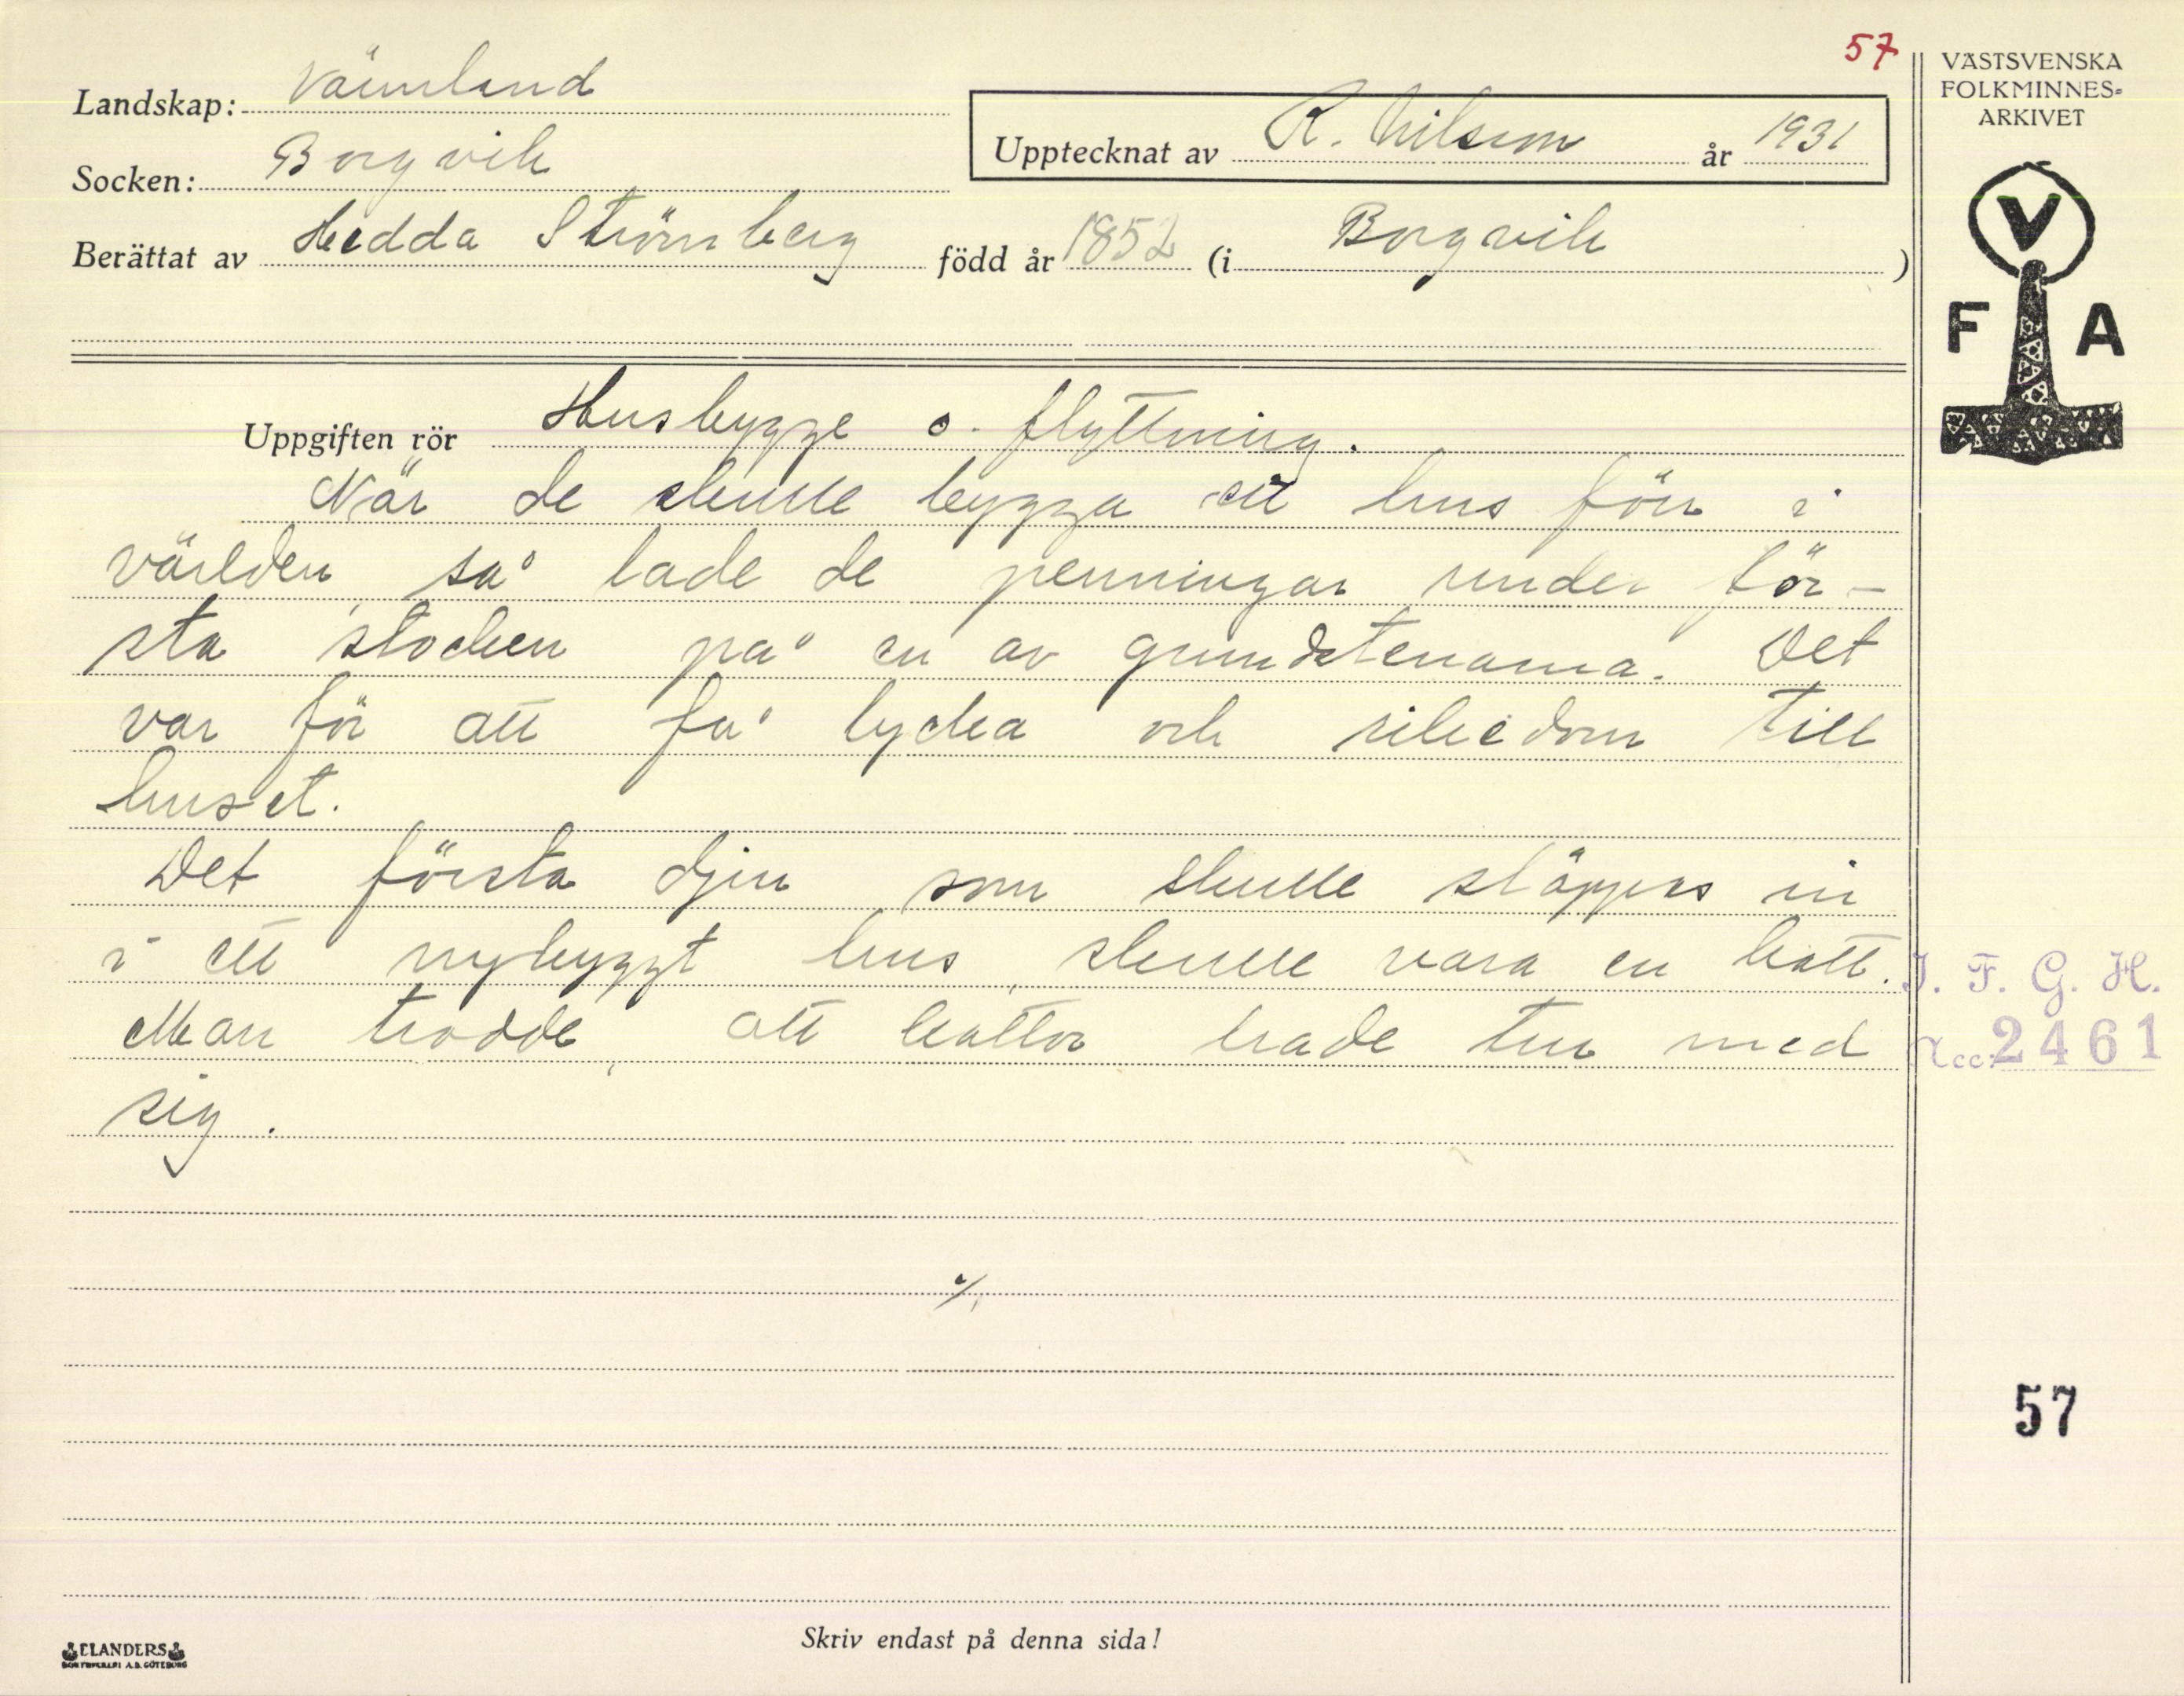 57
Landskap: Värmland
Socken: Borgvik
Upptecknat av R. Nilsson år 1931
Berättat av Hedda Strömberg född år 1852 (i Borgvik)
VÄSTSVENSKA
FOLKMINNES-
ARKIVET
V
F A
Uppgiften rör Husbygge o. flyttning.
När de skulle bygga ett hus förr i
världen, så lade de penningar under för-
sta stocken på en av grundstenarna. Det
var för att få lycka och rikedom till
huset.
Det första djur som skulle släppas in
i ett nybyggt hus, skulle vara en katt.
Man trodde, att kattor hade tur med
sig.
I. F. G. H.
Acc. 2461
./.
57
Skriv endast på denna sida!
ELANDERS
BOKTRYCKERI A.B. GÖTEBORG